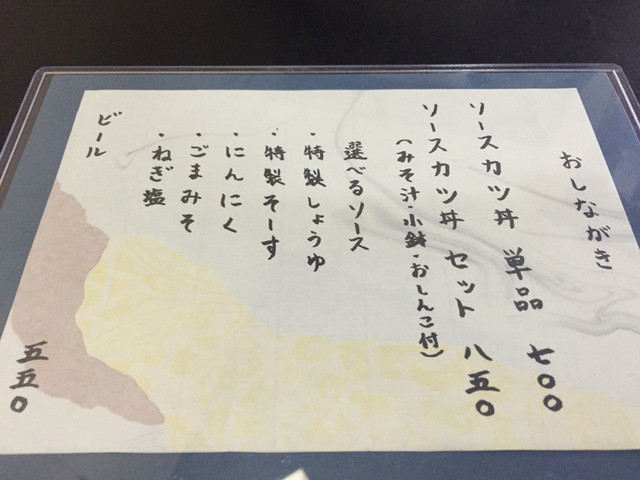 おしながき
ソースカツ丼 単品 七〇〇
ソースカツ丼 セット 八五〇
(みそ汁・小鉢・おしんこ付)
選べるソース
・特製しょうゆ
・特製そーす
・にんにく
・ごまみそ
・ねぎ塩
ビール 五五〇